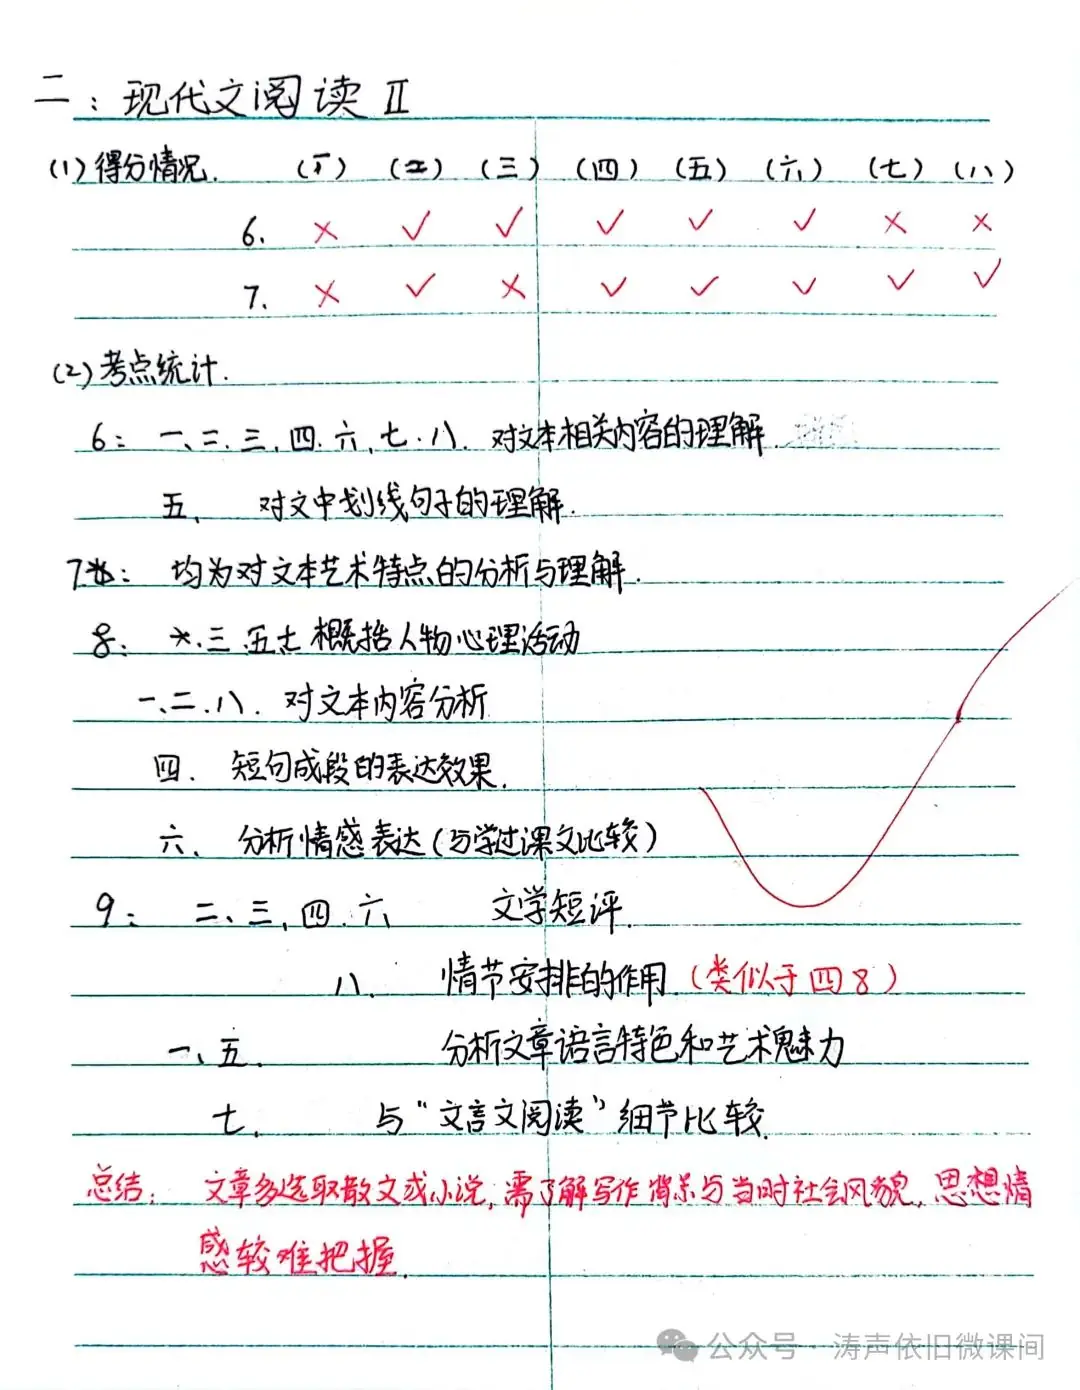 二：现代文阅读Ⅱ
(1)得分情况. (一) (二) (三) (四) (五) (六) (七) (八)
6. × ✓ ✓ ✓ ✓ ✓ × ×
7. × ✓ × ✓ ✓ ✓ ✓ ✓
(2)考点统计.
6: 一、二.三,四.六,七.八. 对文本相关内容的理解.
五、 对文中划线句子的理解.
7: 均为对文本艺术特点的分析与理解.
8: 三.五七概括人物心理活动
一、二.八. 对文本内容分析
四. 短句成段的表达效果.
六、 分析情感表达(与学过课文比较)
9: 二、三,四.六 文学短评.
八. 情节安排的作用.(类似于四8)
一、五. 分析文章语言特色和艺术魅力
七. 与“文言文阅读”细节比较.
总结: 文章多选取散文或小说,需了解写作背景与当时社会风貌,思想情
感较难把握.
公众号·涛声依旧微课间